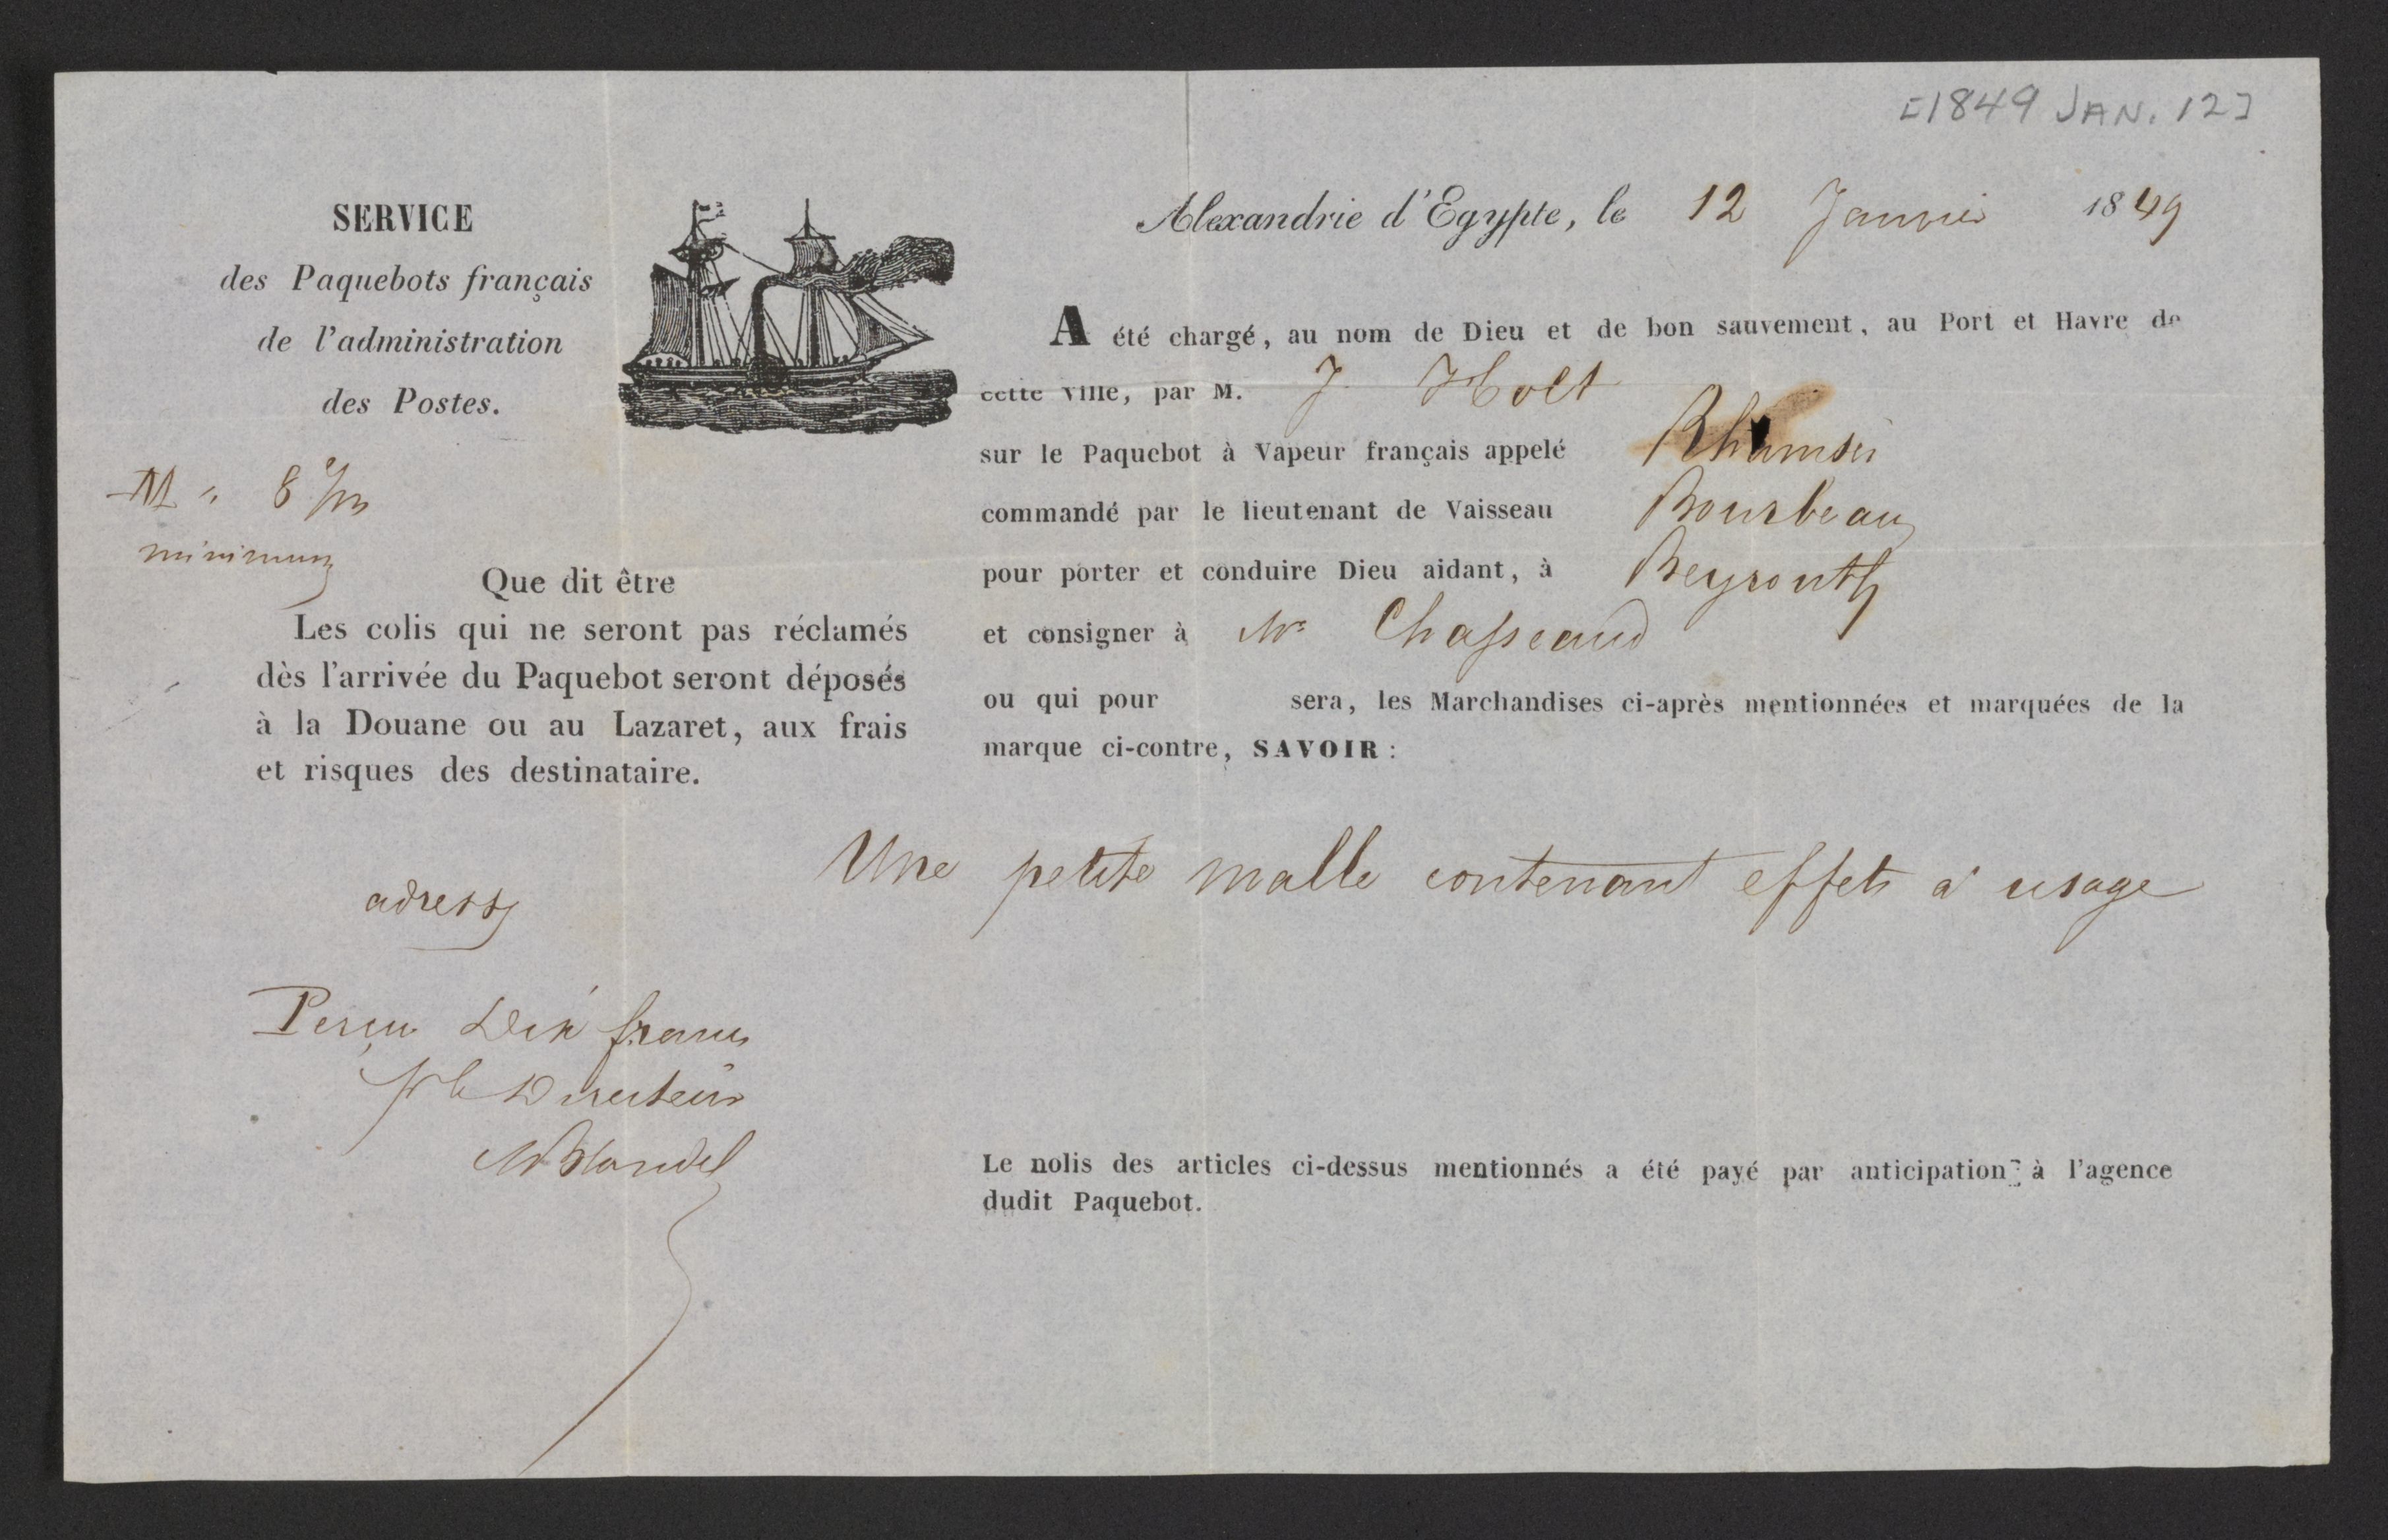 [1849 JAN. 12]
SERVICE
des Paquebots français
de l'administration
des Postes.
M " 8
minimum
Que dit être
Les colis qui ne seront pas réclamés
dès l'arrivée du Paquebot seront déposés
à la Douane ou au Lazaret, aux frais
et risques des destinataire.
adresse
Perçu Dix francs
Pr le Directeur
Alexandrie d'Egypte, le 12 Janvier 1849
A été chargé, au nom de Dieu et de bon sauvement, au Port et Havre de
cette Ville, par M. J Holt
sur le Paquebot à Vapeur français appelé Rhamsès
commandé par le lieutenant de Vaisseau Bourbeau
pour porter et conduire Dieu aidant, à Beyrouth
et consigner à Mr Chasseaud
ou qui pour sera, les Marchandises ci-après mentionnées et marquées de la
marque ci-contre, SAVOIR :
Une petite malle contenant effets à usage
Le nolis des articles ci-dessus mentionnés a été payé par anticipation à l'agence
dudit Paquebot.